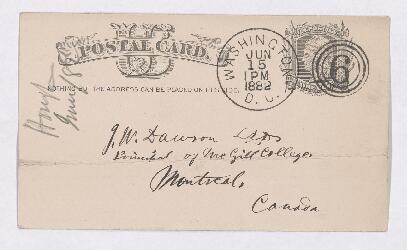 POSTAL CARD.
NOTHING BUT THE ADDRESS CAN BE PLACED ON THIS SIDE.
WASHINGTON
JUN
15
1 PM
1882
D. C.
6
J. W. Dawson LLD
Principal of McGill College
Montreal,
Canada